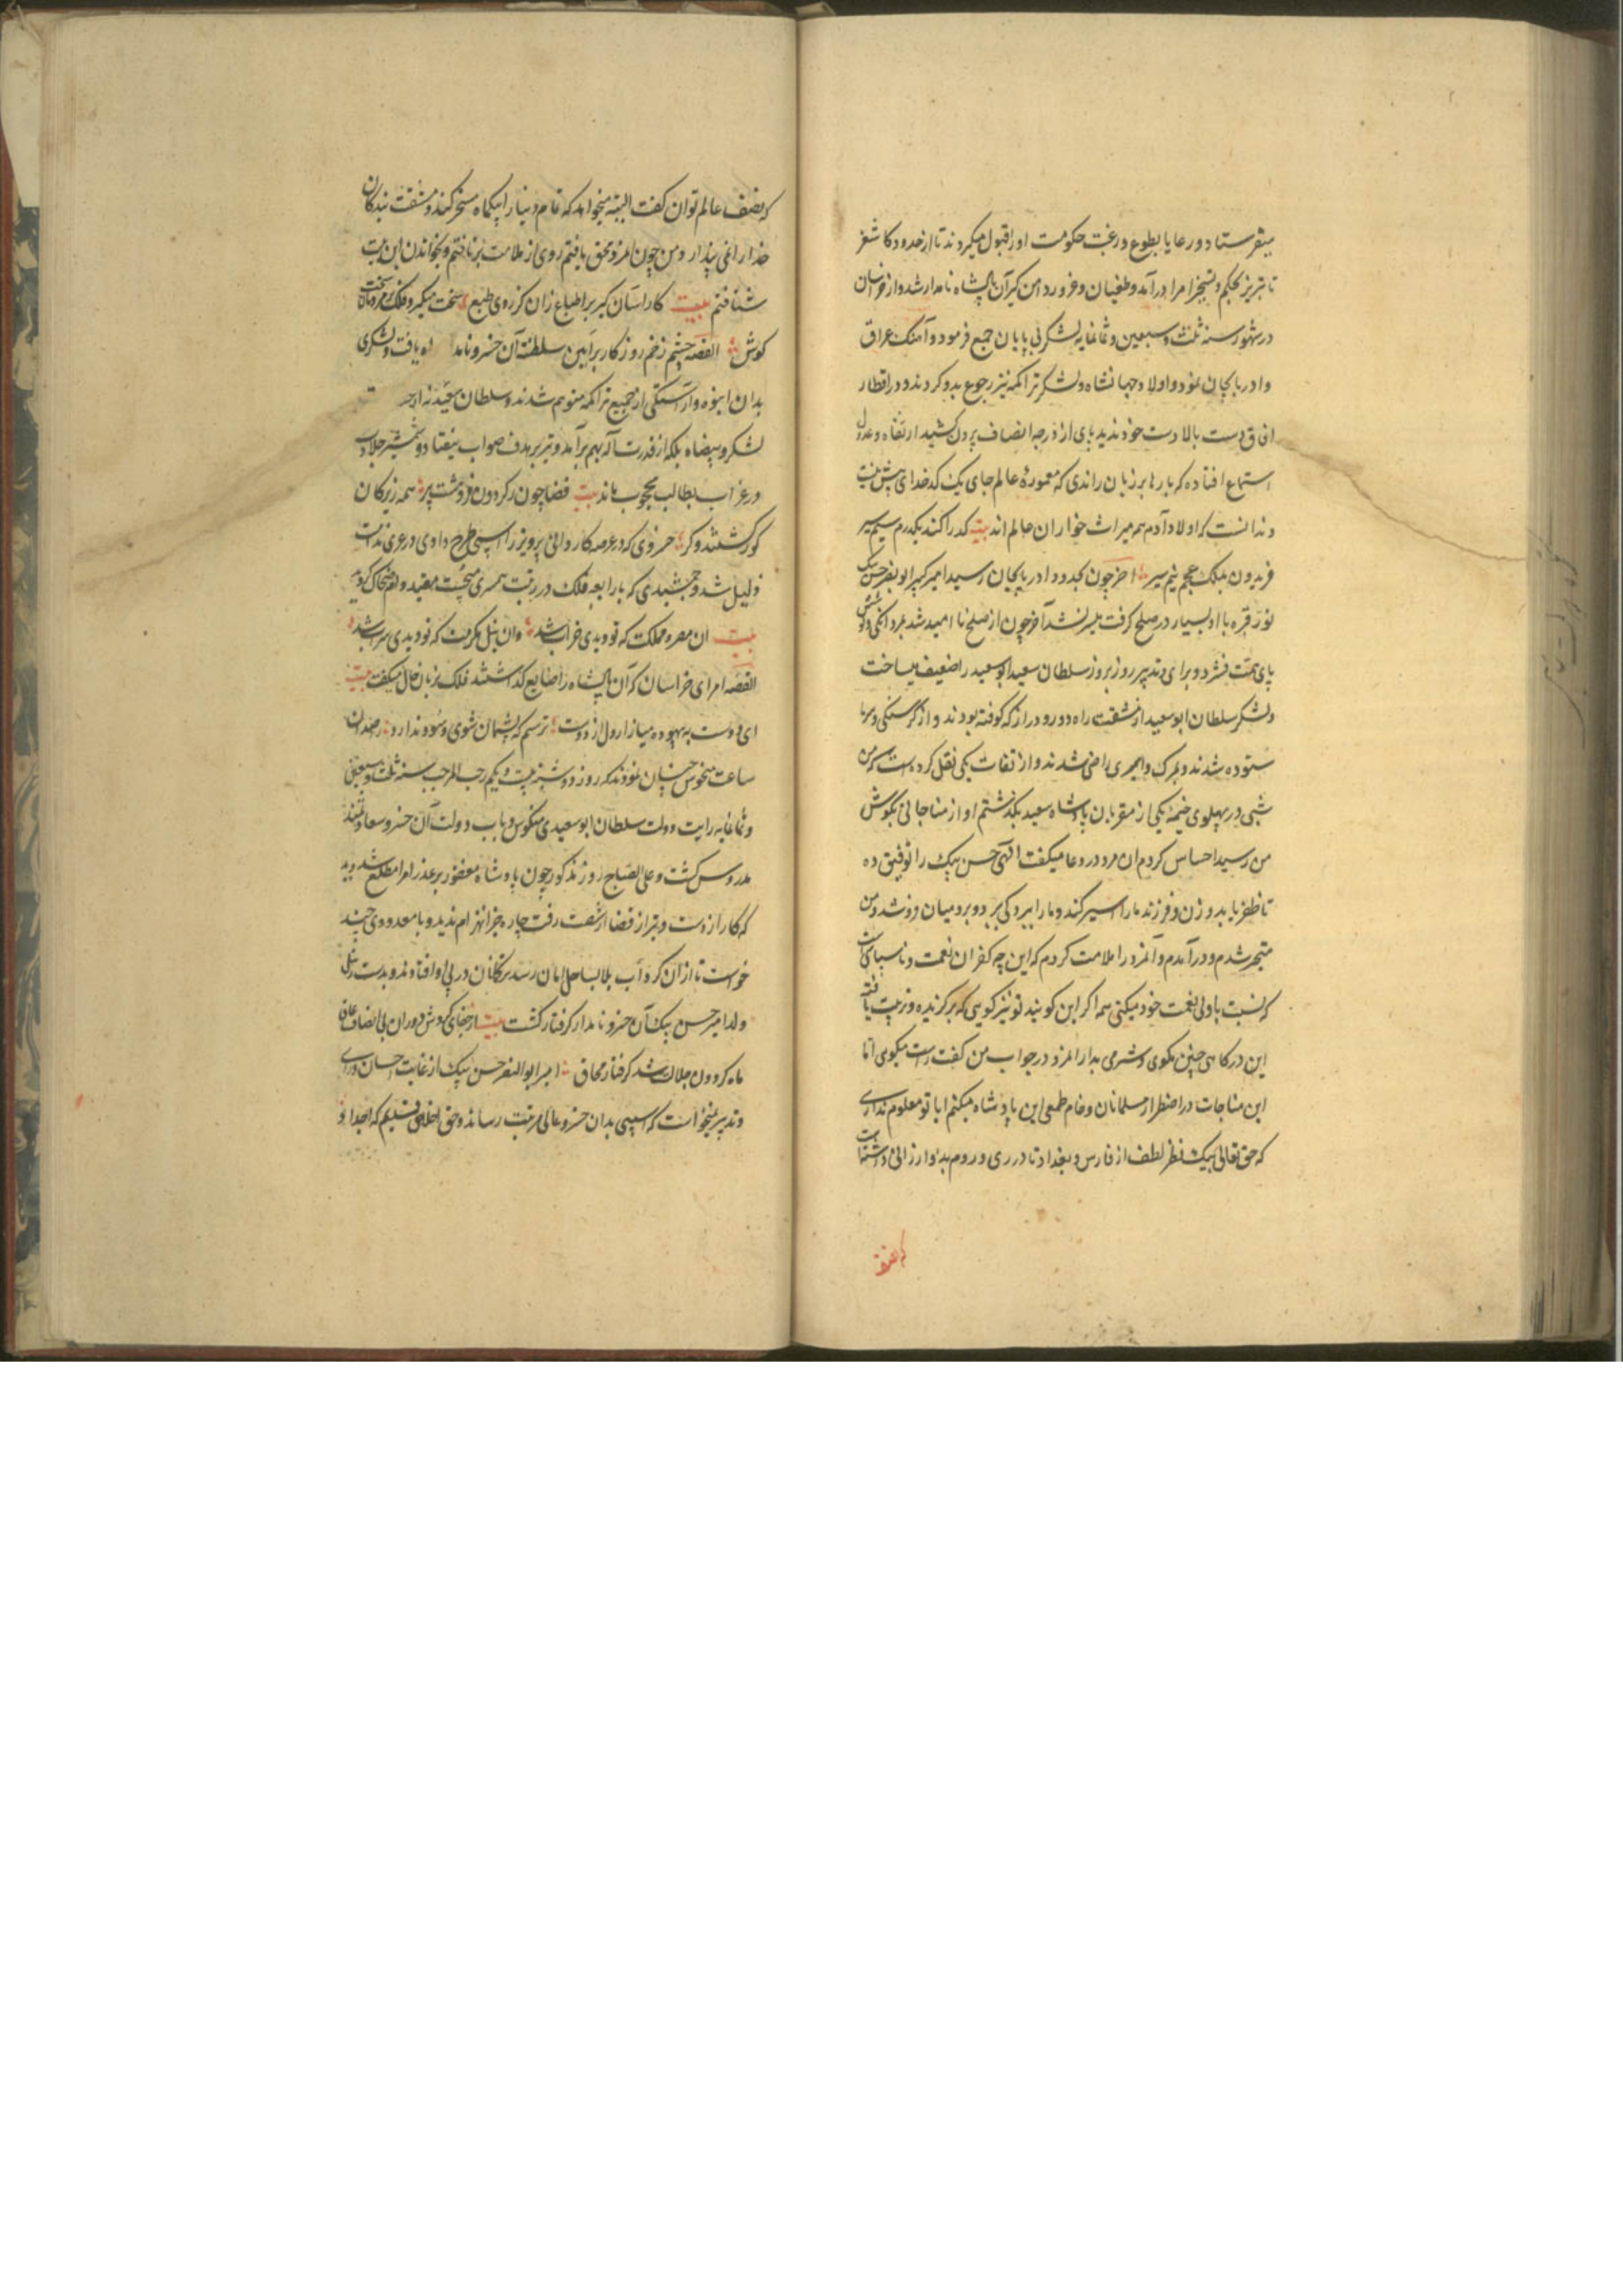 میفرستاد و رعایا بطوع و رغبت حکومت او را قبول میکردند تا از حدود کاشغر
تا تبریز بحکم و تسخیر امرا درآمد و طغیان و غرور دامن گیر آن پادشاه نامدار شد و از خراسان
در شهور سنه ثلث و سبعین و ثمانمایه لشکر بی پایان جمع فرمود و آهنگ عراق
و ادربایجان نمود و اولاد جهانشاه و لشکر تراکمه نیز رجوع بدو کردند و در اقطار
افاق دست بالا دست خود ندید پای از درجه انصاف برون کشید ارتفاه و عدول
استماع افتاده که بارها بر زبان راندی که معموره عالم جای یک کدخدای بیش نیست
و ندانست که اولاد آدم همه میراث خواران عالم اند بیت کدا را کند یکدرم سیم سیر
فریدون بملک عجم نیم سیر اخر چون بحدود ادربایجان رسید امیر کبیر ابو نصر حسن بیک
نور قبره با او بسیار در صلح کرفت میسر نشد آخر چون از صلح نا امید شد مردانکی و کوشش
پای همت فشرد و برای و تدبیر روز بروز سلطان سعید ابو سعید را ضعیف میساخت
و لشکر سلطان ابو سعید از مشقت راه دور و دراز که کوفته بودند و از کرسنکی و سرما
ستوده شدند و بمرک و اسیری راضی شدند و از ثقات یکی نقل کرده است که من
شبی در پهلوی خیمه یکی از مقربان پادشاه سعید بکذشتم اواز مناجاتی بکوش
من رسید احساس کردم ان مرد در دعا میکفت الهی حسن بیک را توفیق ده
تا ظفر یابد و زن و فرزند ما را اسیر کند و ما را ببردکی برد و برد میان فروشد و من
متحیر شدم و درآمدم و آنمرد را ملامت کردم که این چه کفران نعمت و ناسپاسی است
که نسبت با ولی نعمت خود میکنی همه اکر این کویند تو نیز کویی که برکزیده و تربیت یافته
این درکاهی چنین مکوی و شرمی بدار انمرد در جواب من کفت راست میکویی اما
این مناجات در اضطرار مسلمانان و خام طمعی این پادشاه میکنم ایا تو معلوم نداری
که حق تعالی بیک نظر لطف از فارس و بغداد تا در ری و روم بدو ارزانی داشته است
که نصف
که نصف عالم توان کفت البته میخواهد که تمام دنیا را بیکماه مسخر کند و مشقت بندکان
خدا را غمی پندارد و من چون انمرد محق یافتم روی از ملامت برتافتم و بخواندن این بیت
شتافتم بیت کار اسان کیر بر طباع زان کز روی طبع سخت میکیرد فلک بر مردمان سخت
کوش القصه چشم زخم روزکار برایین سلطنت آن خسرو نامدار راه یافت و لشکری
بدان انبوه و آراستکی از جمیع تراکمه متوهم شدند و سلطان سعید نه از چه
لشکر و سپاه بلکه از قدرت اله بهم برآمد و تیر بر هدف صواب نیفتاد و شمشیر جلادت
در غراب بطالب محجوب ماند بیت قضا چون ز کردون فرو هشت پر همه زیرکان
کور کشتند و کر خسروی که در عرصه کار والی پرویز را اسپی طرح دادی در عری ندامت
ذلیل شد و جمشیدی که با رابعه فلک در رتبت همسری میجست مقید دام ضحاک کردید
بیت ان مصر مملکت که تو دیدی خراب شد وان نیل مکرمت که تو دیدی سراب شد
القصه امرای خراسان کر آن پادشاه را ضایع کذاشتند فلک بزبان حال میکفت بیت
ای دوست به بیهوده میازار دل از دوست ترسم که پشیمان شوی و سود ندارد رصدان
ساعت منحوس چنان نمودند که روز دوشنبه بیست و یکم رجب المرجب سنه ثلث و سبعین
و ثمانمایه رایت دولت سلطان ابو سعیدی منکوس و باب دولت آن خسرو سعادتمند
مدروس کشت و علی الصباح روز مذکور چون پادشاه مغفور بر عذر امرا مطلع شد و دید
که کار از دست و تیر از قضا از شصت رفت چاره جز انهزام ندید و با معدودی چند
خواست تا ازان کرداب بلا بساحل امان رسد ترکمانان در پی او افتادند و بدست زینل
ولد امیر حسن بیک آن خسرو نامدار کرفتار کشت بیت از جفای کردش دوران بی انصاف عاق
ماه کردون جلالت شد کرفتار محاق امیر ابو النصر حسن بیک از غایت احسان و رای
و تدبیر نمیخواست که اسیبی بدان خسرو عالی مرتبت رساند و حق اخلاص قدیم که اجداد او